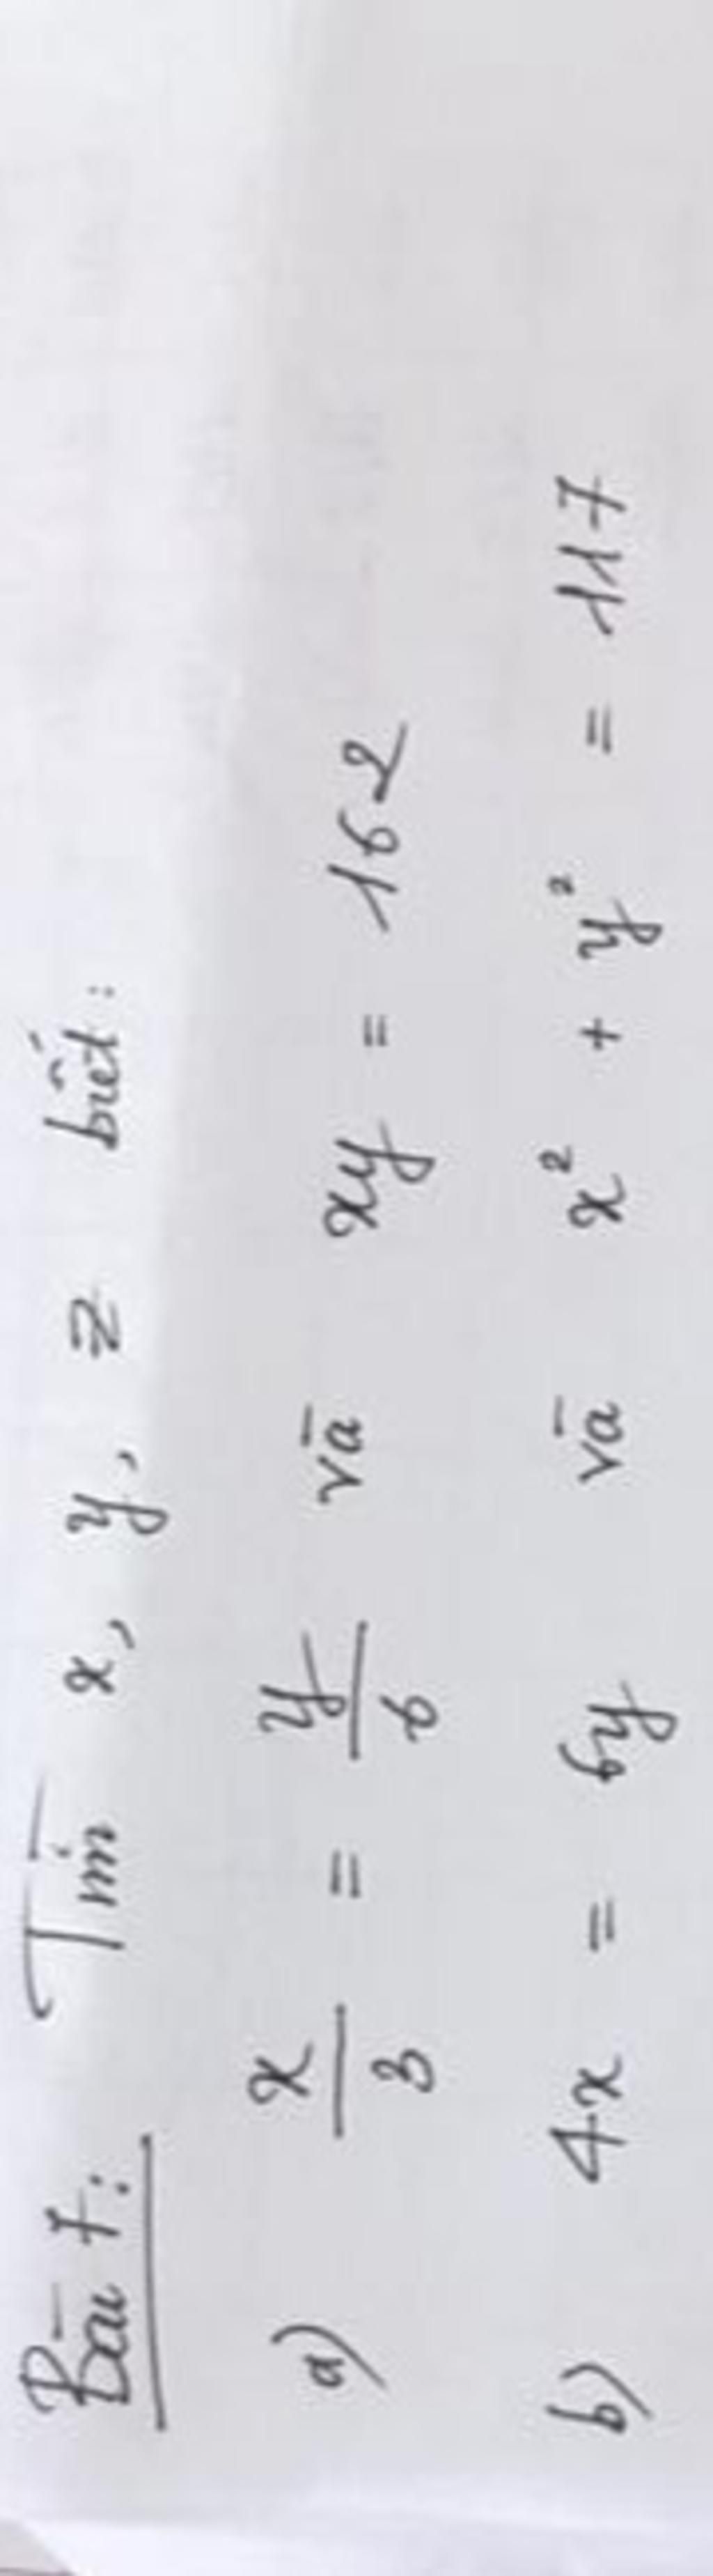 Bài 7: Tìm x, y, z biết:
a) x/3 = y/6 và xy = 162
b) 4x = 6y và x² + y² = 117